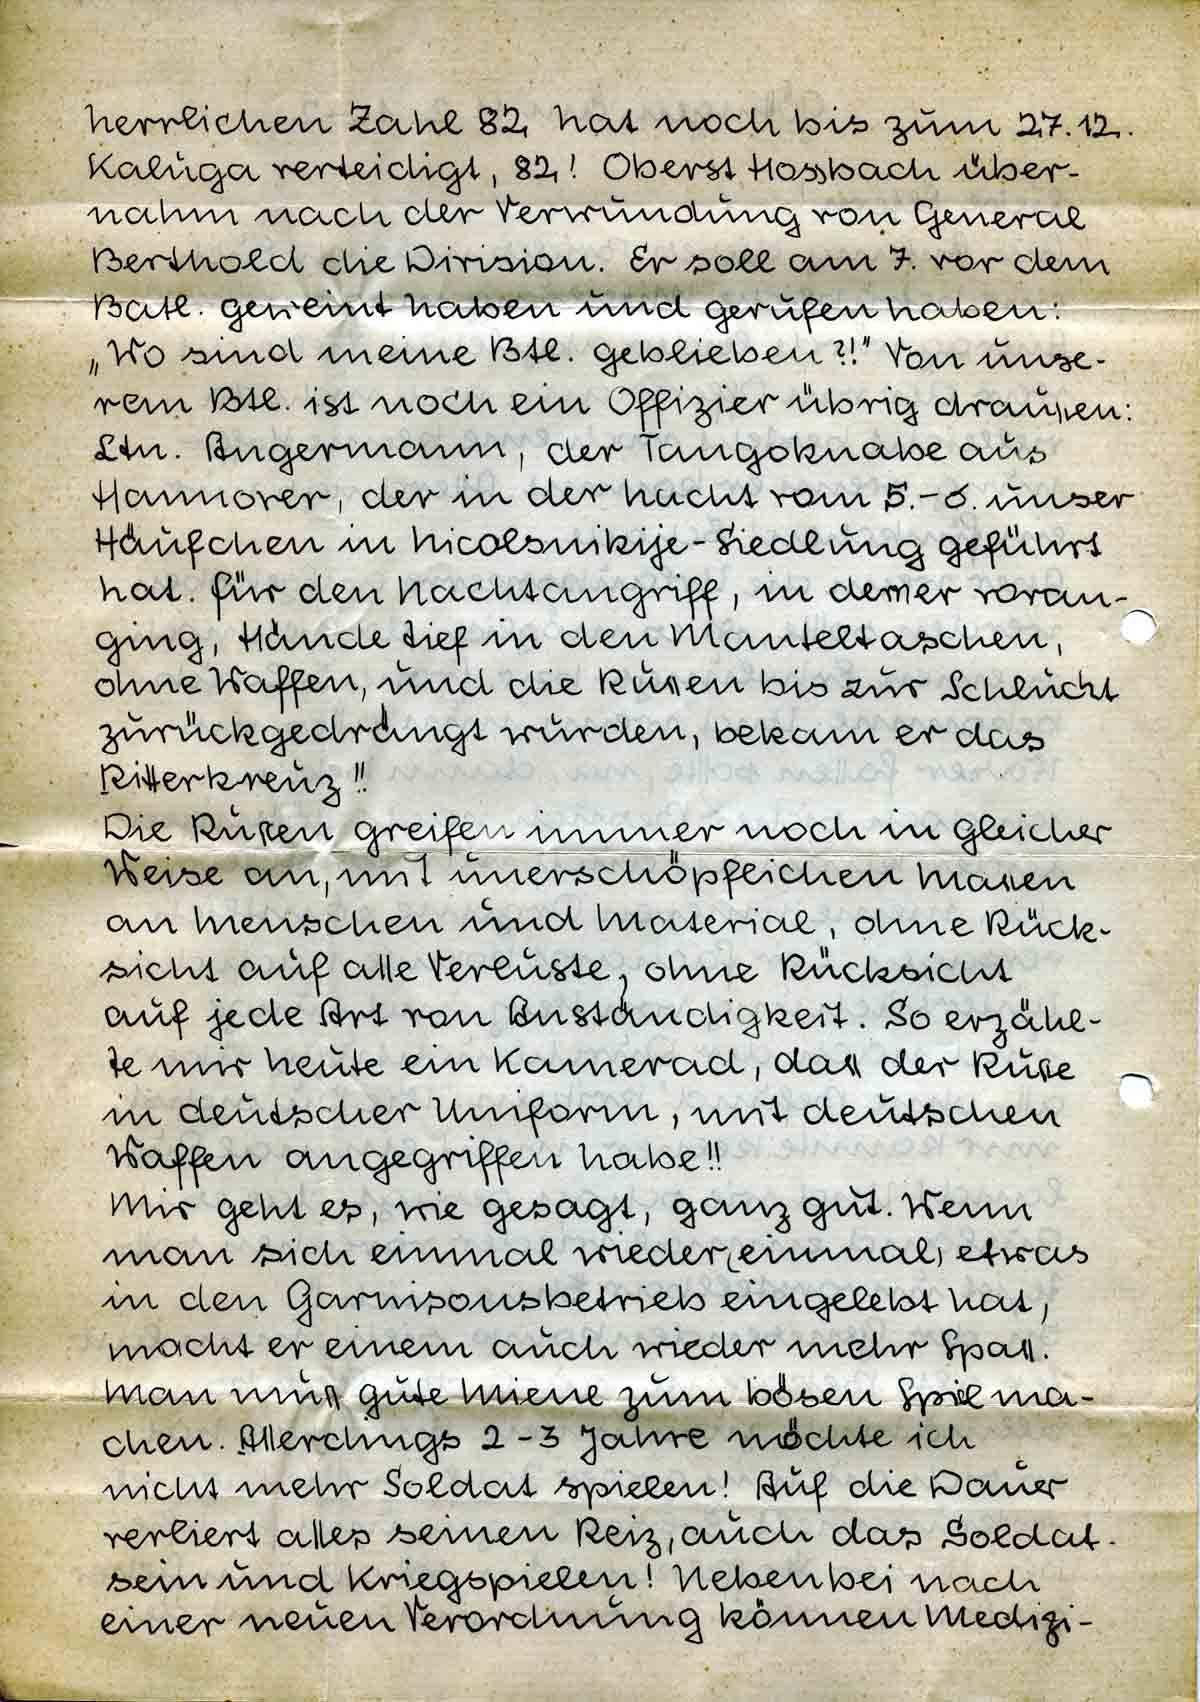 herrlichen Zahl 82, hat noch bis zum 27.12.
Kaluga verteidigt, 82! Oberst Hossbach über-
nahm nach der Verwundung von General
Berthold die Division. Er soll am 7. vor dem
Batl. geweint haben und gerufen haben:
„Wo sind meine Btl. geblieben?!" Von unse-
rem Btl. ist noch ein Offizier übrig draußen:
Ltn. Angermann, der Tangoknabe aus
Hannover, der in der Nacht vom 5.-6. unser
Häufchen in Nicolsnikije-Siedlung geführt
hat. Für den Nachtangriff, in dem er voran-
ging, Hände tief in den Manteltaschen,
ohne Waffen, und die Rußen bis zur Schlucht
zurückgedrängt wurden, bekam er das
Ritterkreuz!!
Die Rußen greifen immer noch in gleicher
Weise an, mit unerschöpflichen Maßen
an Menschen und Material, ohne Rück-
sicht auf alle Verluste, ohne Rücksicht
auf jede Art von Anständigkeit. So erzähl-
te mir heute ein Kamerad, daß der Ruße
in deutscher Uniform, mit deutschen
Waffen angegriffen habe!!
Mir geht es, wie gesagt, ganz gut. Wenn
man sich einmal wieder (einmal) etwas
in den Garnisonsbetrieb eingelebt hat,
macht er einem auch wieder mehr Spaß.
Man muß gute Miene zum bösen Spiel ma-
chen. Allerdings 2-3 Jahre möchte ich
nicht mehr Soldat spielen! Auf die Dauer
verliert alles seinen Reiz, auch das Soldat-
sein und Kriegspielen! Nebenbei nach
einer neuen Verordnung können Medizi-